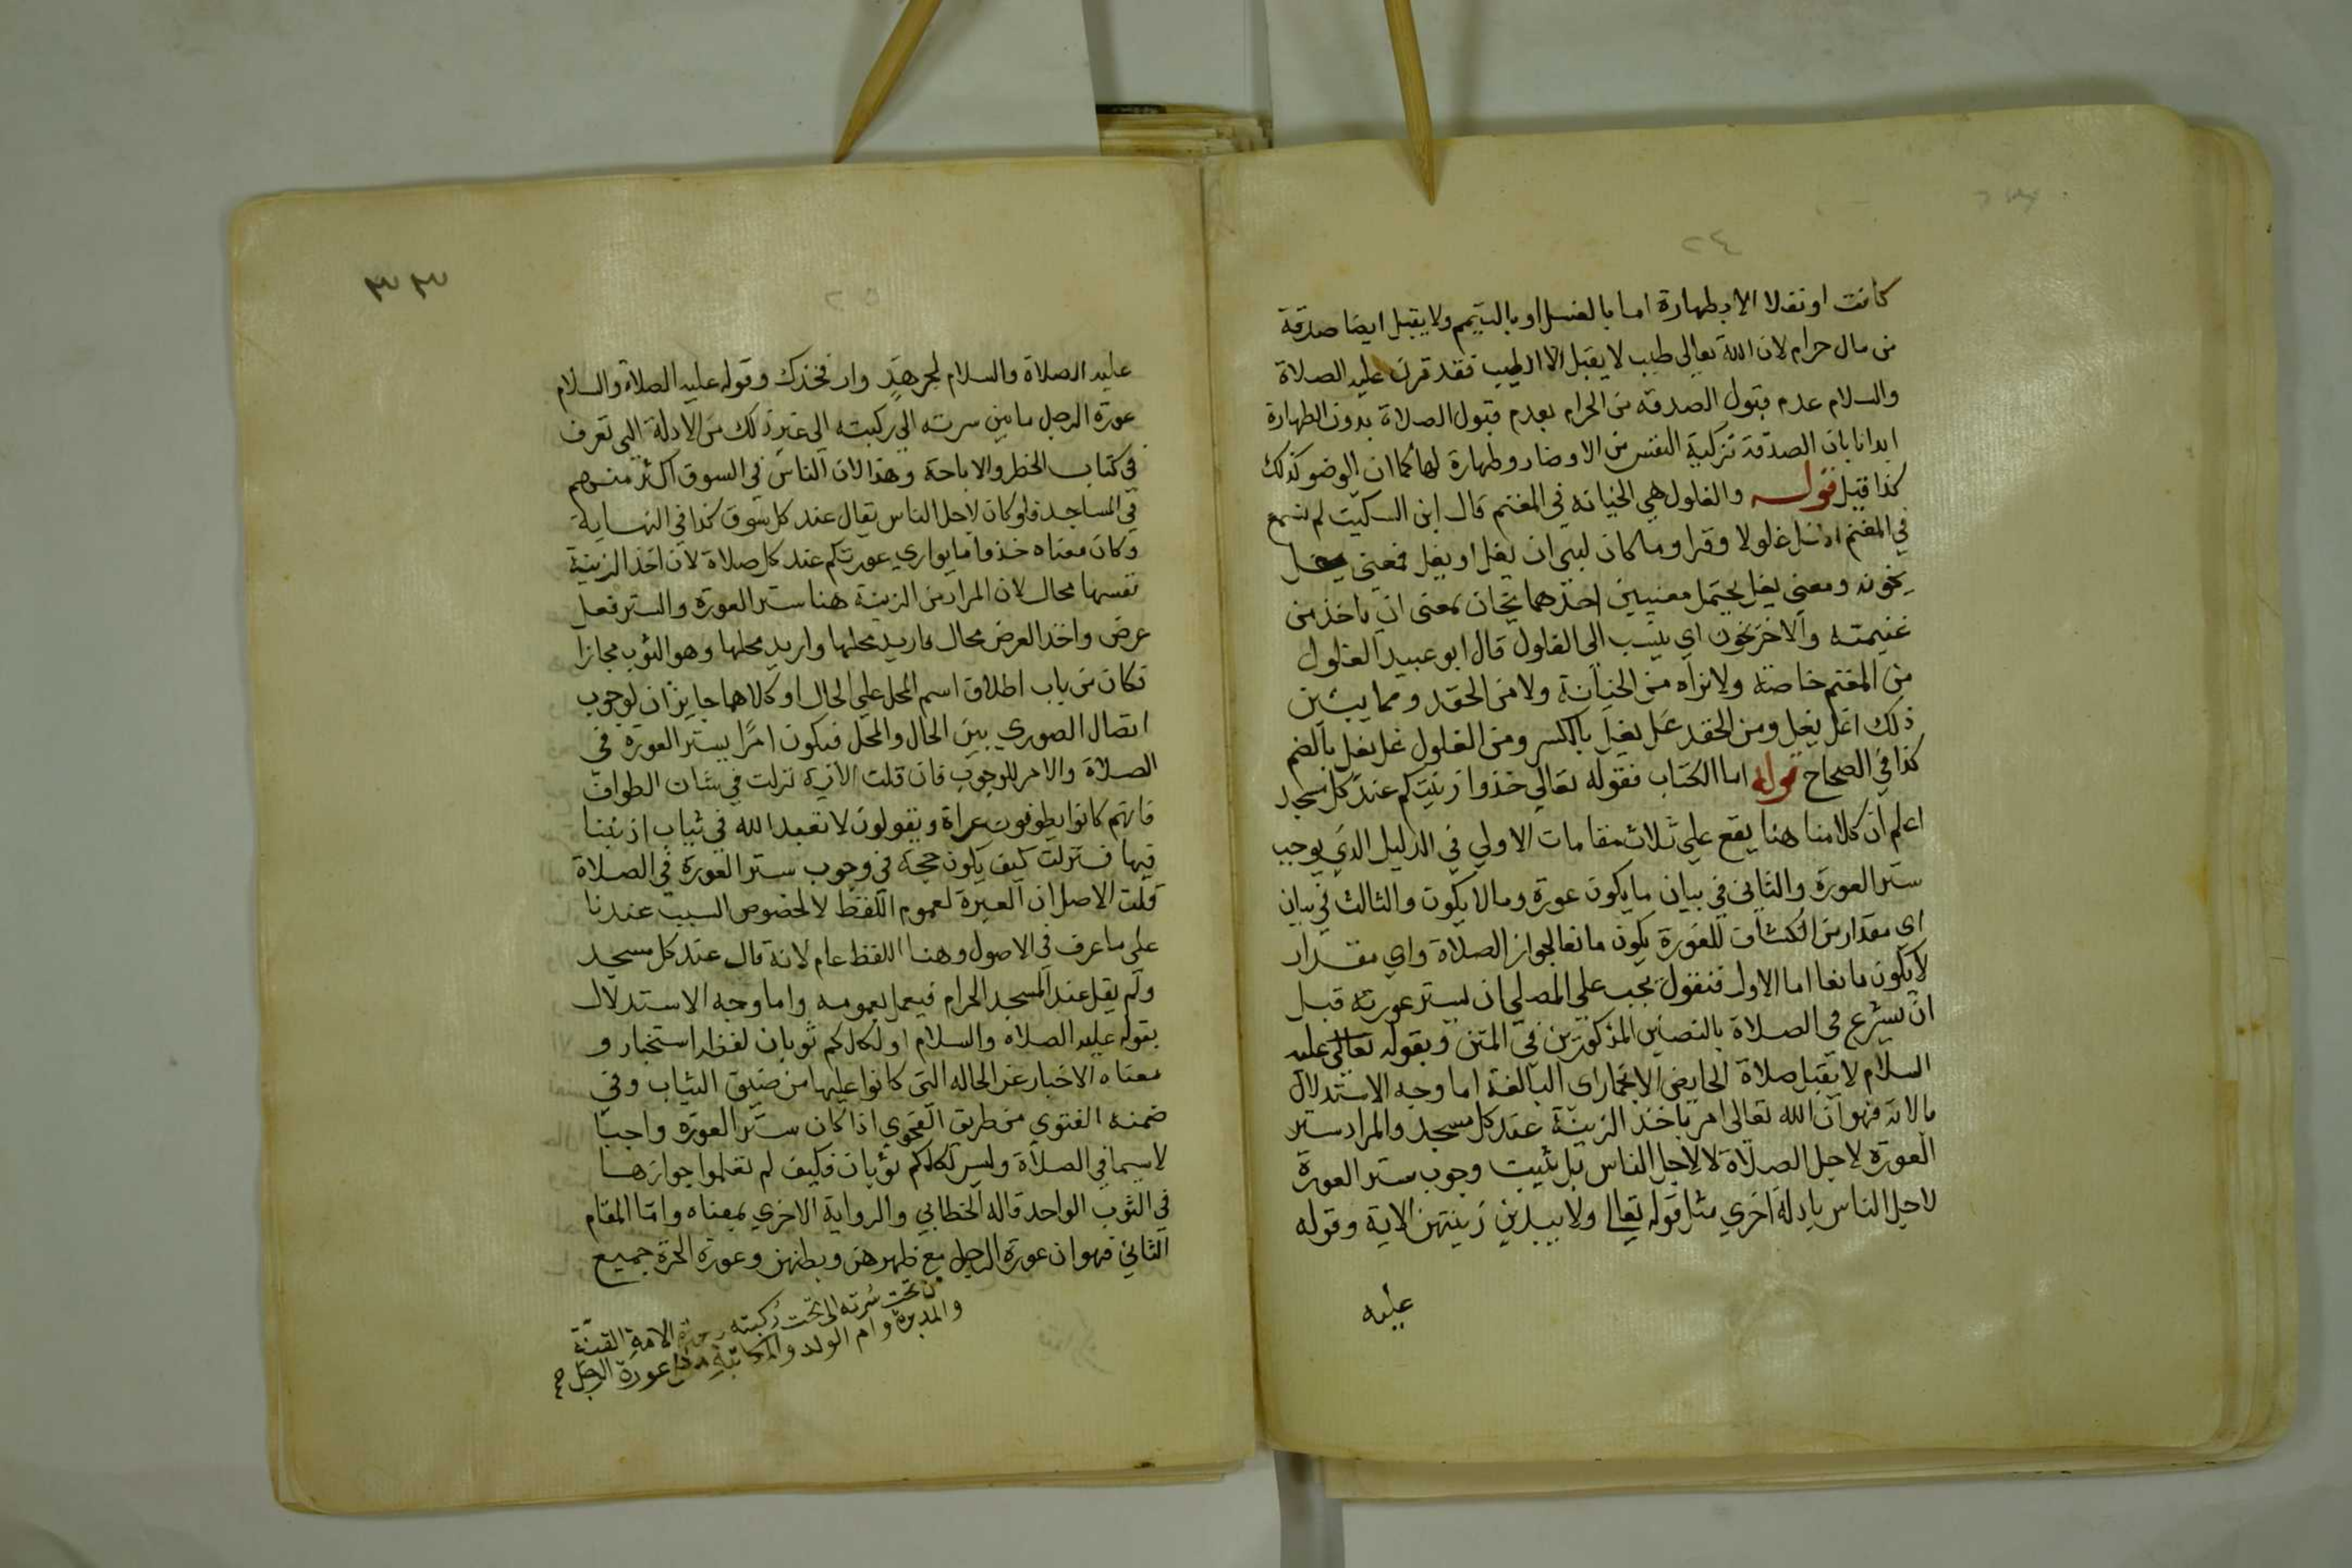 ٢٤
كانت او نفلا الا بطهارة اما بالغسل او بالتيمم ولا يقبل ايضا صدقة
من مال حرام لان الله تعالى طيب لا يقبل الا الطيب فقد قرن عليه الصلاة
والسلام عدم قبول الصدقه من الحرام بعدم قبول الصلاة بدون الطهارة
ايذانا بان الصدقة تزكية النفس من الاوضار وطهارة لها كما ان الوضو كذلك
كذا قيل قوله والغلول هي الخيانه في المغنم قال ابن السكيت لم نسمع
في المغنم الا غل غلولا وقرا وما كان لنبي ان يغل او يغل فمعنى يغل
يخون ومعنى يغل يحتمل معنيين احدهما يخان بمعنى ان ياخذ من
غنيمته والاخر يخون اي ينسب الى الغلول قال ابو عبيد الغلول
من المغنم خاصة ولا نراه من الخيانة ولا من الحقد ومما يبين
ذلك اغل يغل ومن الحقد غل يغل بالكسر ومن الغلول غل يغل بالضم
كذا في الصحاح قوله اما الكتاب فقوله تعالى خذوا زينتكم عند كل مسجد
اعلم ان كلامنا هنا يقع على ثلاث مقامات الاولي في الدليل الذي يوجب
ستر العورة والثاني في بيان ما يكون عورة وما لا يكون والثالث في بيان
اي مقدار من انكشاف للعورة يكون مانعا لجواز الصلاة واي مقدار
لا يكون مانعا اما الاول فنقول يجب على المصلي ان يستر عورته قبل
ان يشرع في الصلاة بالنصين المذكورين في المتن وبقوله تعالى عليه
السلام لا يقبل صلاة الحايض الا بخمار اى البالغة اما وجه الاستدلال
بالاية فهو ان الله تعالى امر باخذ الزينة عند كل مسجد والمراد ستر
العورة لاجل الصلاة لا لاجل الناس بل يثبت وجوب ستر العورة
لاجل الناس بادلة اخري مثل قوله تعالى ولا يبدين زينتهن الاية وقوله
عليه
٣٣
٢٥
عليه الصلاة والسلام لجرهد وار فخذك وقوله عليه الصلاة والسلام
عورة الرجل ما بين سرته الى ركبته الى غير ذلك من الادلة التي تعرف
في كتاب الحظر والاباحة وهذا لان الناس في السوق اكثر منهم
في المساجد فلو كان لاجل الناس يقال عند كل سوق كذا في النهاية
وكان معناه خذوا ما يواري عورتكم عند كل صلاة لان اخذ الزينة
نفسها محال لان المراد من الزينة هنا ستر العورة والستر فعل
عرض واخذ العرض محال فاريد محلها واريد محلها وهو الثوب مجازا
فكان من باب اطلاق اسم المحل علي الحال او كلاهما جايزان لوجوب
اتصال الصوري بين الحال والمحل فيكون امرا بستر العورة في
الصلاة والامر للوجوب فان قلت الاية نزلت في شان الطواف
فانهم كانوا يطوفون عراة ويقولون لا نعبد الله في ثياب اذنبنا
فيها فنزلت كيف يكون حجة في وجوب ستر العورة في الصلاة
قلت الاصل ان العبرة لعموم اللفظ لا لخصوص السبب عندنا
على ما عرف في الاصول وهنا اللفظ عام لانه قال عند كل مسجد
ولم يقل عند المسجد الحرام فيعمل بعمومه واما وجه الاستدلال
بقوله عليه الصلاة والسلام او لكلكم ثوبان لفظه استخبار و
معناه الاخبار عن الحاله التى كانوا عليها من ضيق الثياب وفي
ضمنه الفتوى من طريق الفحوي اذا كان ستر العورة واجبا
لا سيما في الصلاة وليس لكلكم ثوبان فكيف لم تعلموا جوازها
في الثوب الواحد قاله الخطابي والرواية الاخري بمعناه واما المقام
الثاني فهو ان عورة الرجل مع ظهرهن وبطنهن وعورة الحرة جميع
من تحت سرته الى تحت ركبته وعورة الامة القنة
والمدبرة وام الولد والمكاتبة مثل عورة الرجل صح